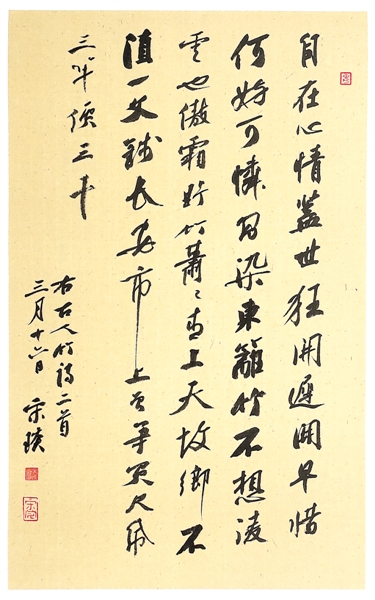 自在心情蓋世狂開遲開早惜
何妨可憐習染東籬竹不想凌
雲也傲霜竹蕭々直上天故鄉不
值一文錢長安市上竿尺
三價三千
右古人竹詩二首
三月十六日